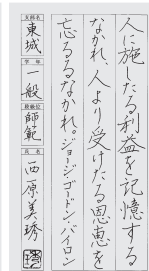 人に施したる利益を記憶する
なかれ、人より受けたる恩恵を
忘るるなかれ。ジョージ・ゴードン・バイロン
支部名 東城
学年 一般
段級位 師範
氏名 西原美琇